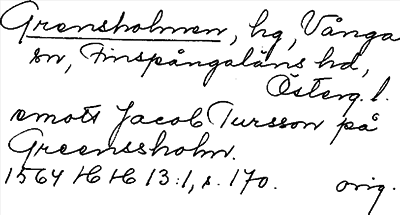 Grensholmen, hg, Vånga
sn, Finspångaläns hd,
Österg. l.
emott Jacob Tursson på
Greenssholm.
1564 HH 13:1, s. 170. orig.